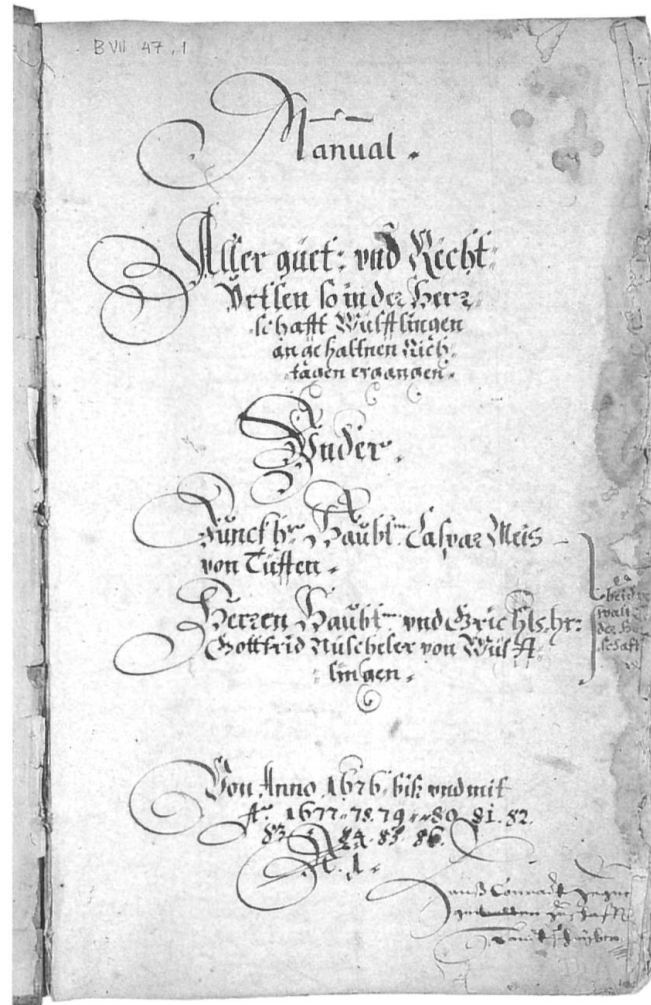 B VII 47,1
Manual.
Aller güet: vnd Recht:
Vrtlen so in der Herr:
schafft Wülfflingen
an gehaltnen Rich:
tägen ergangen.
Vnder.
Junckhr. Haubtm. Caspar Meis
von Tüffen.
Herren Haubtm. vnd Grichts. hr:
Gottfrid Nüscheler von Wülff:
lingen.
beid
der H
schaft
Von Anno 1676. biß vnd mit
A° 1677. 78. 79. 80. 81. 82.
83. 84. 85. 86.
N. 1.
Conradt